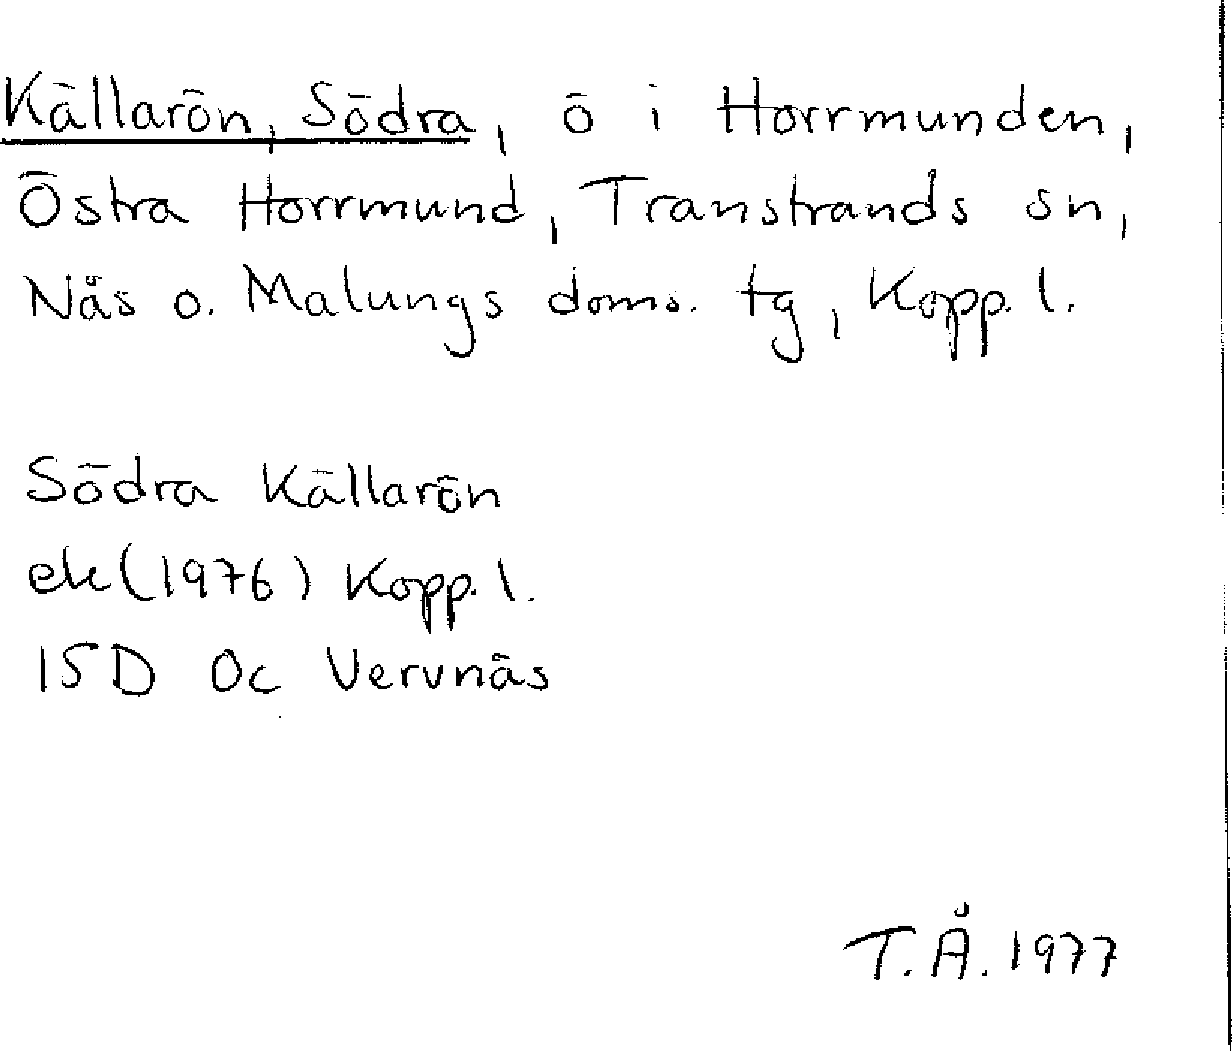 Källarön, Södra, ö i Horrmunden,
Östra Horrmund, Transtrands sn,
Näs o. Malungs doms. tg, Kopp. l.
Södra Källarön
ek (1976) Kopp. l.
15D 0c Vervnäs
T.Å. 1977